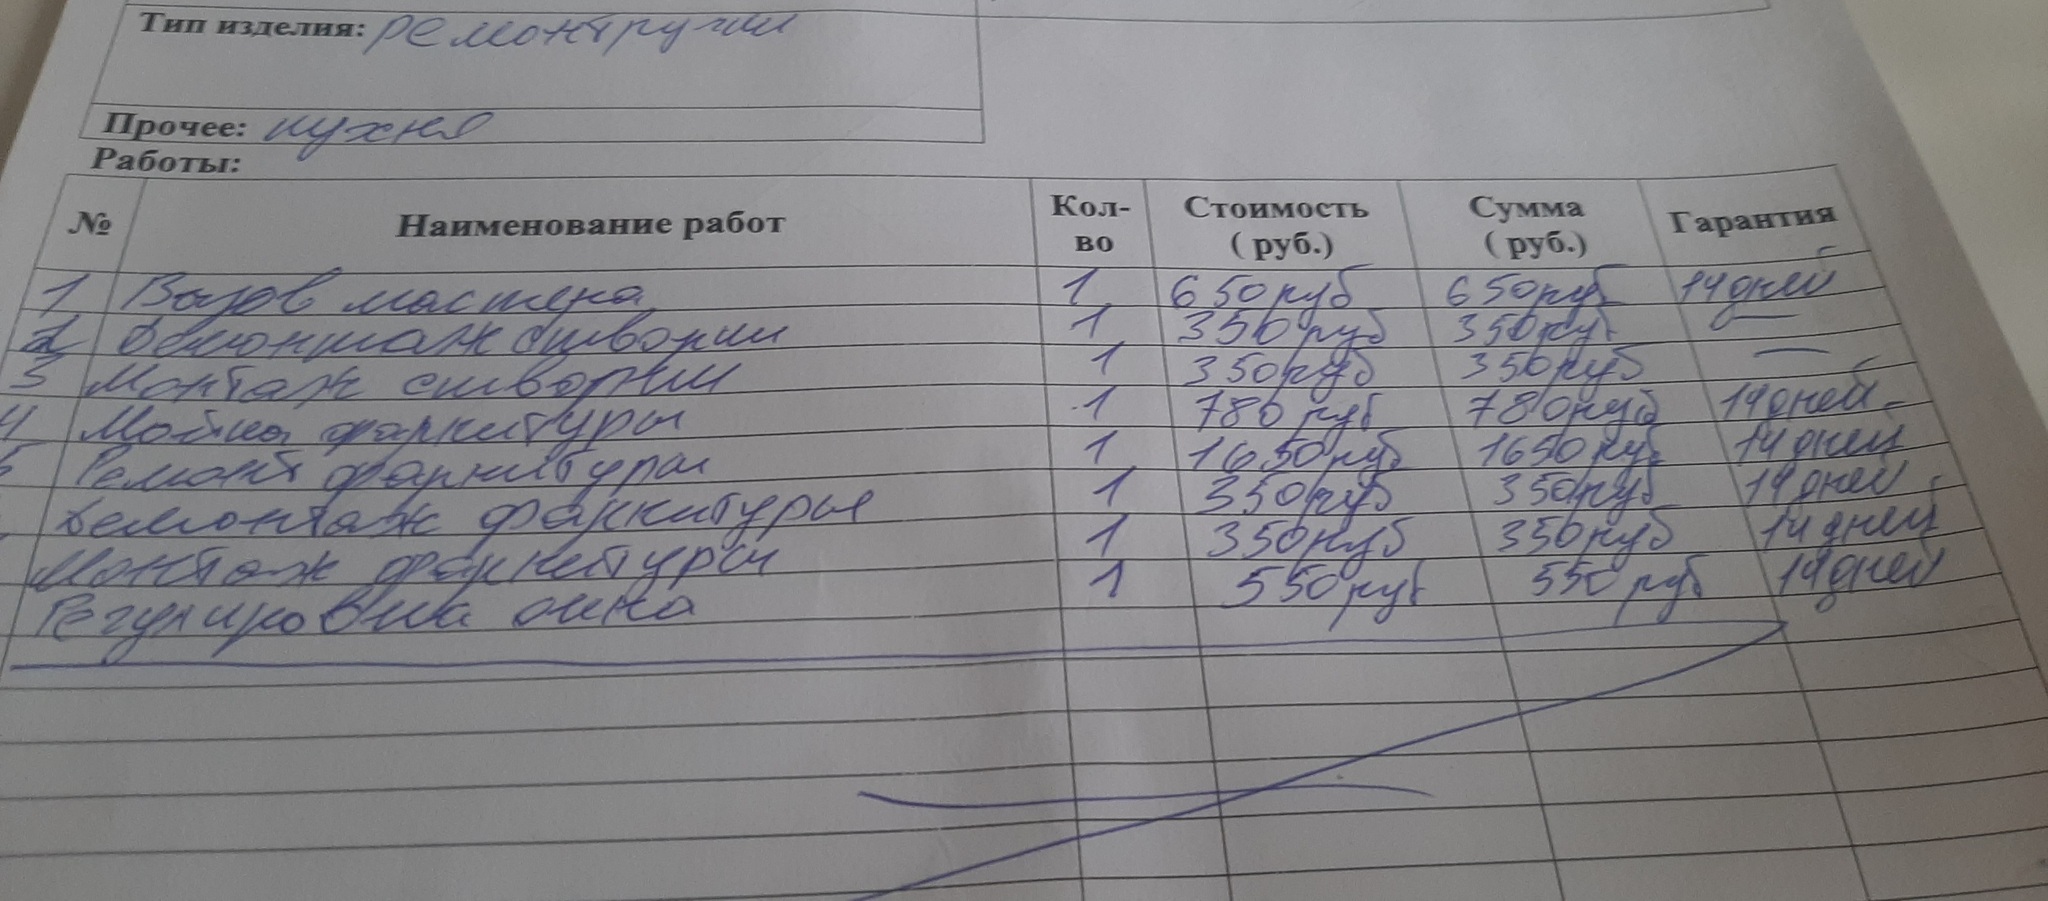 Тип изделия: ремонт ручки
Прочее: кухня
Работы:
№ Наименование работ Кол-во Стоимость (руб.) Сумма (руб.) Гарантия
1 Вызов мастера 1 650 руб 650 руб 14 дней
2 Демонтаж створки 1 350 руб 350 руб —
3 Монтаж створки 1 350 руб 350 руб —
4 Мойка фурнитуры 1 780 руб 780 руб 14 дней
5 Ремонт фурнитуры 1 1650 руб 1650 руб 14 дней
Демонтаж фурнитуры 1 350 руб 350 руб 14 дней
Монтаж фурнитуры 1 350 руб 350 руб 14 дней
Регулировка окна 1 550 руб 550 руб 14 дней